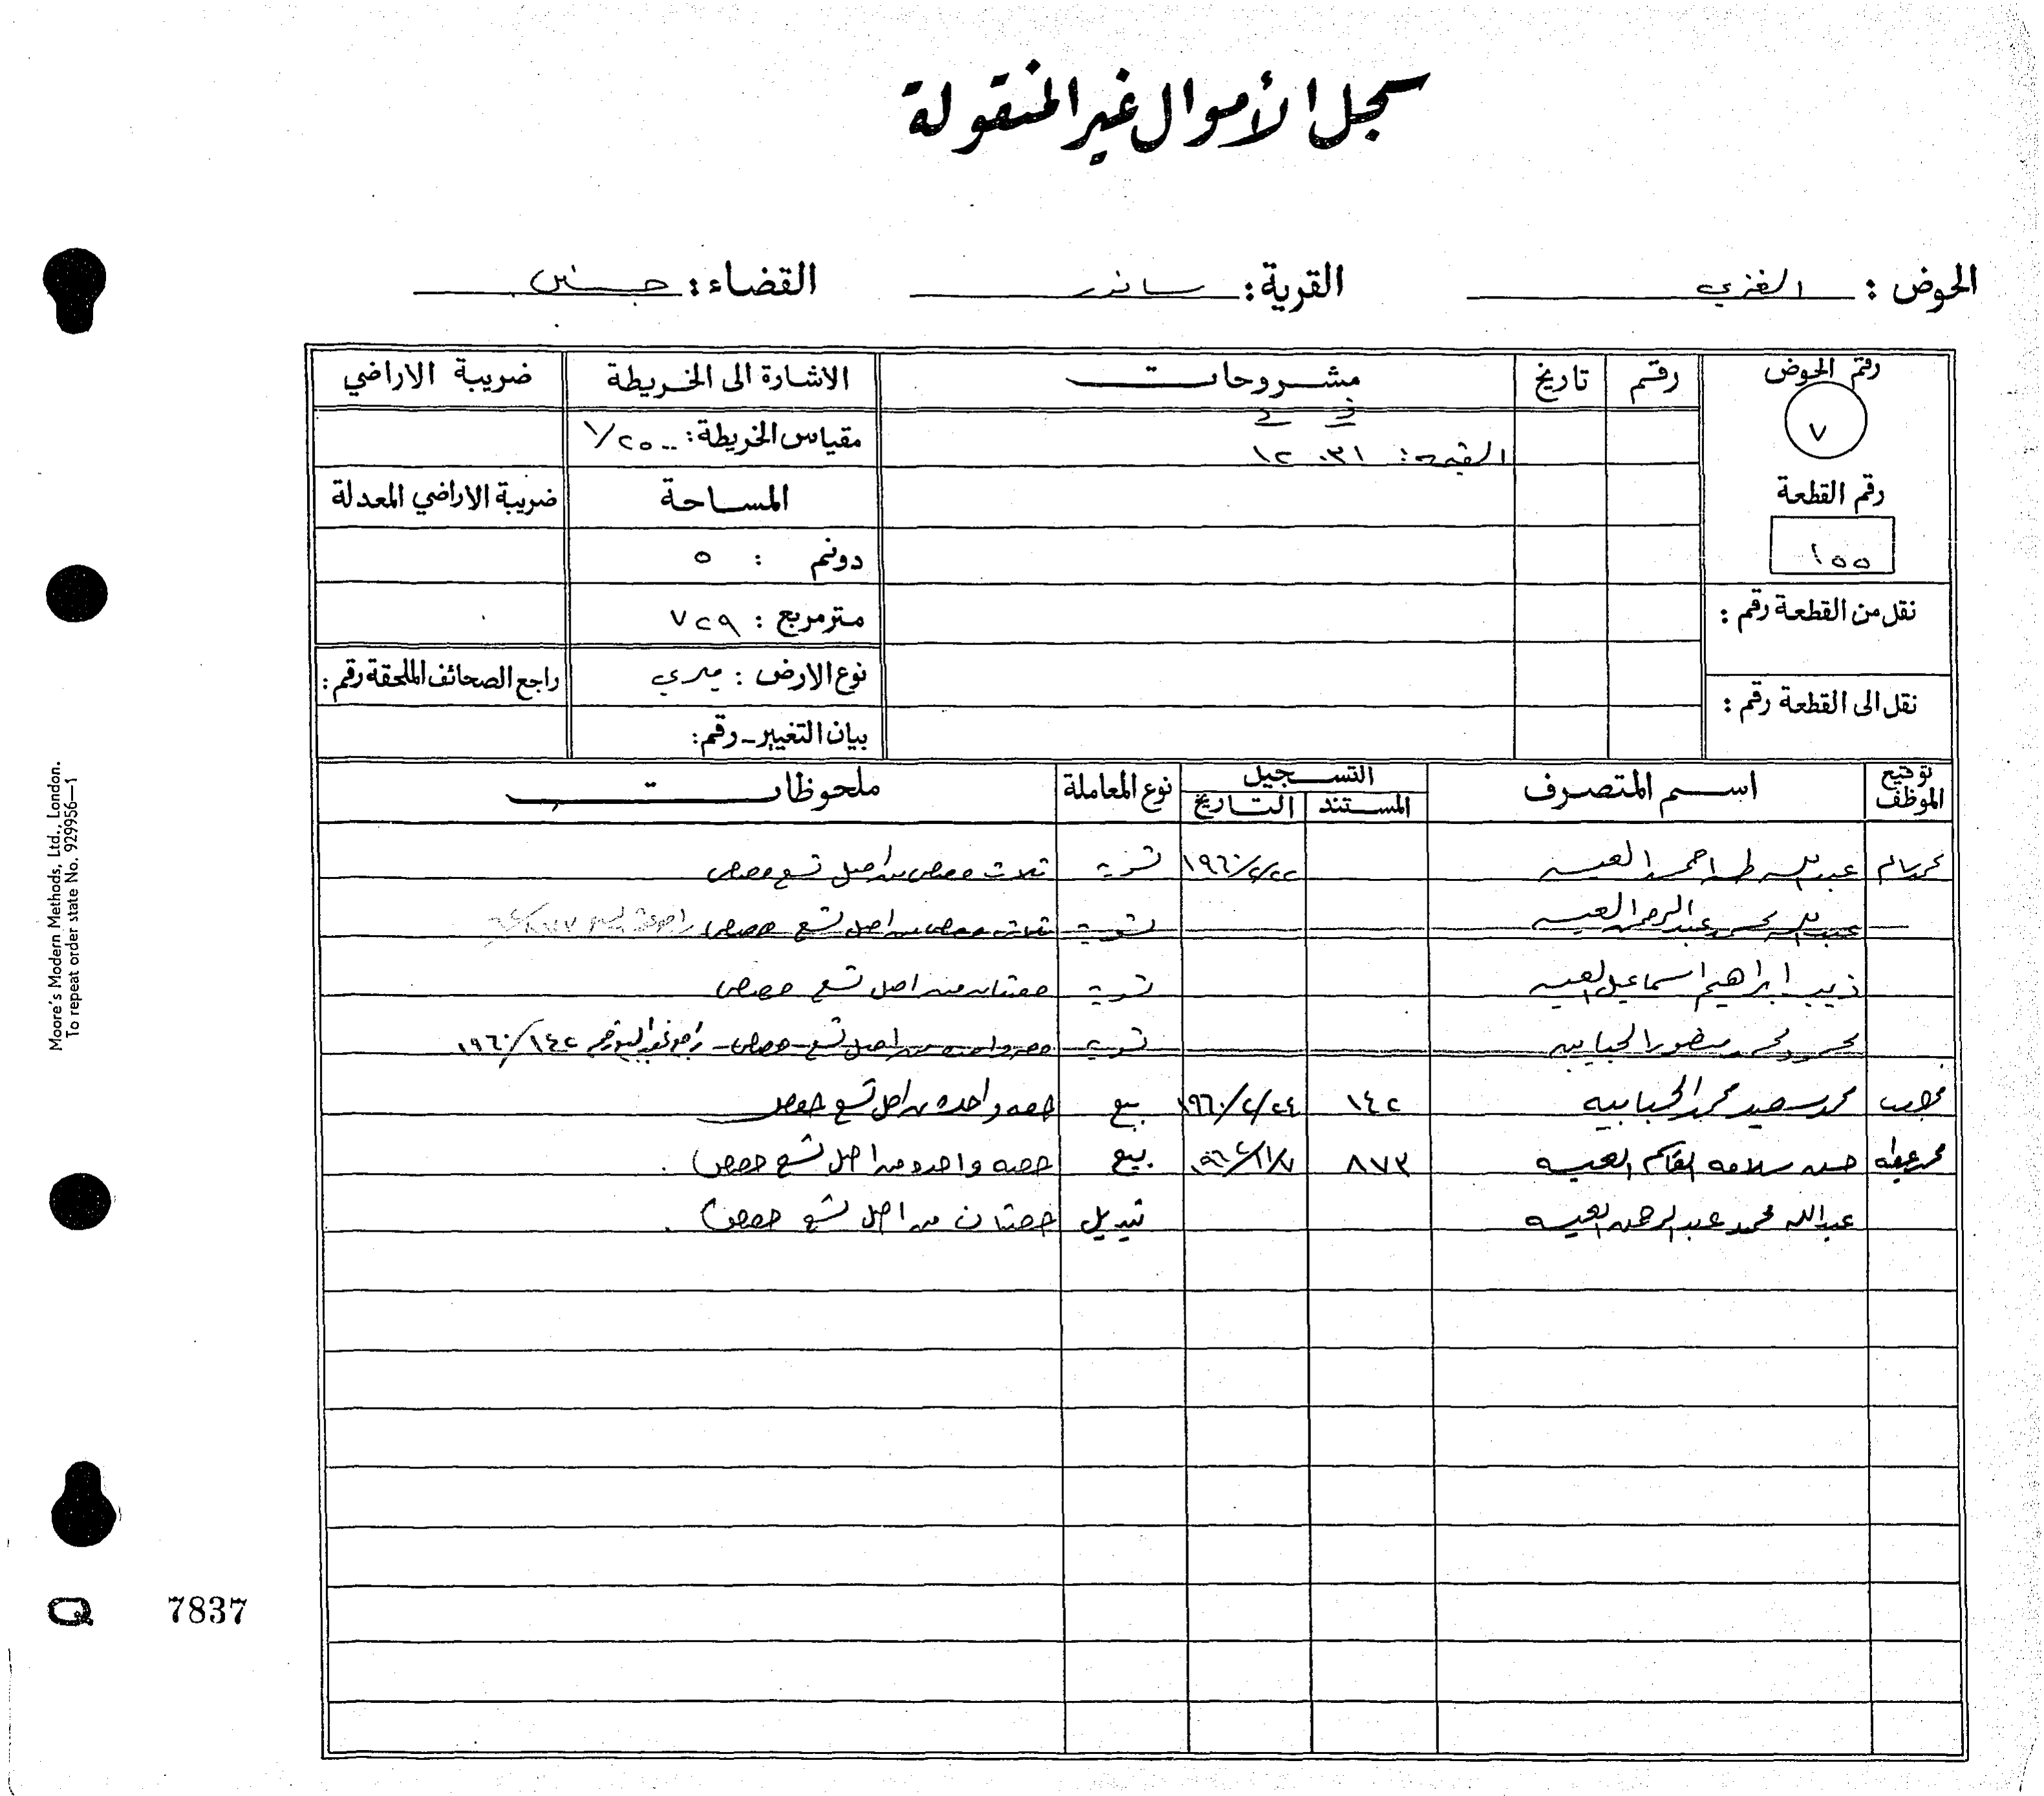 سجل الأموال غير المنقولة
الحوض : الغزي القرية : ساندر القضاء : جنين
رقم الحوض رقم تاريخ مشروحات الاشارة الى الخريطة ضريبة الاراضي
٧
ف د
القيمة : ٠٣١ ١٢
مقياس الخريطة : ١/٢٥٠٠
رقم القطعة المساحة ضريبة الاراضي المعدلة
١٥٥ دونم : ٥
نقل من القطعة رقم : متر مربع : ٧٢٩
نوع الارض : ميري راجع الصحائف الملحقة رقم :
نقل الى القطعة رقم :
بيان التغيير - رقم :
توقيع الموظف اسم المتصرف التسجيل نوع المعاملة ملحوظات
المستند التاريخ
عبد الله طه احمد العيسه ١٩٦٠/٢/٢٢ تسوية ثلاث حصص من اصل تسع حصص
عبد الله محمد عبد الرحمن العيسه تسوية ثلاث حصص من اصل تسع حصص
ذيب ابراهيم اسماعيل العيسه تسوية حصتان من اصل تسع حصص
محمود محمد منصور الحبايبه تسوية حصه واحده من اصل تسع حصص - راجع عقد البيع رقم ١٤٢/١٩٦٠
محمد سعيد محمد الحبايبه ١٤٢ ١٩٦٠/٢/٢٤ بيع حصه واحده من اصل تسع حصص
محمد عطيه حسن سلامه القاسم العيسه ٨٧٣ بيع حصه واحده من اصل تسع حصص .
عبد الله محمد عبد الرحمن العيسه تبديل حصتان من اصل تسع حصص .
Moore's Modern Methods, Ltd., London.
To repeat order state No. 929956—1
Q 7837